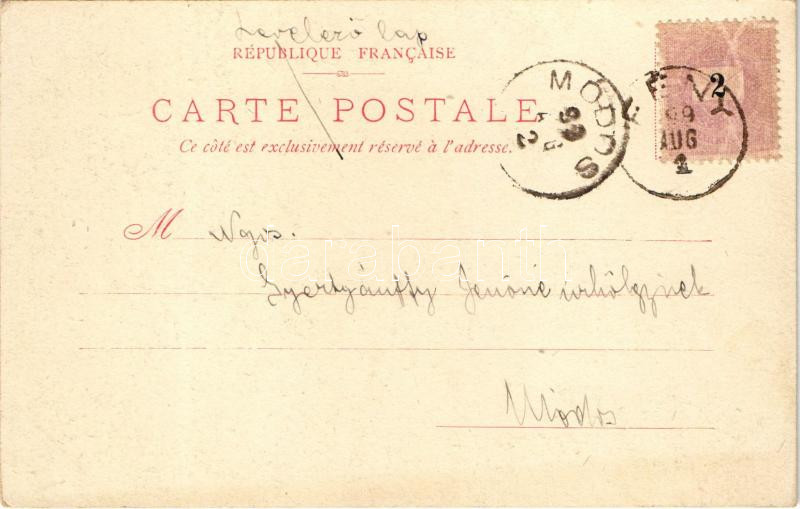 Levelező lap
RÉPUBLIQUE FRANÇAISE
CARTE POSTALE
Ce côté est exclusivement réservé à l'adresse.
MÓDOS
99
2
99
AUG
1
2
M Ngos.
Gyertyánffy Jenőné úrhölgynek
Módos
darabanth